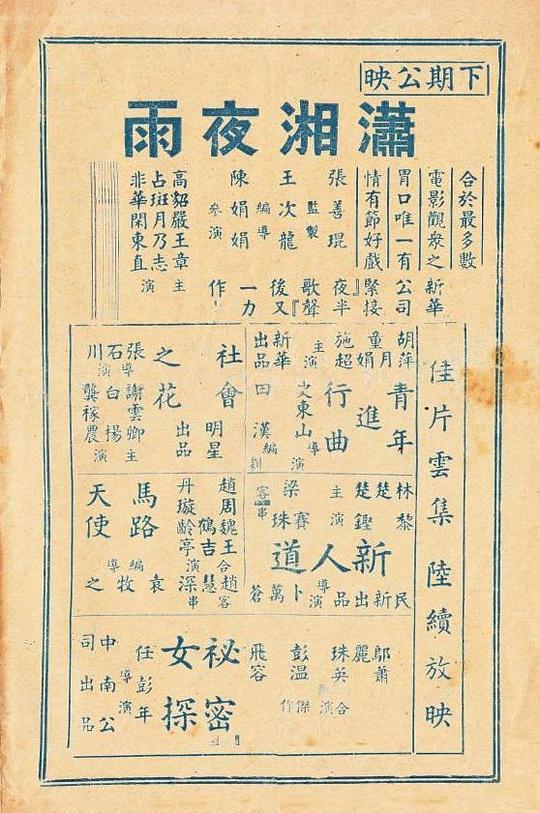 下期公映
瀟湘夜雨
合於最多數
電影觀衆之
胃口唯一有
情有節好戲
新華
公司
緊接
『夜半
歌聲
』後又
一力
作
張善琨
監製
王次龍
編導
陳娟娟
參演
高貂嚴王章
占斑月乃志
非華閑東直
主演
佳片雲集陸續放映
胡萍
童月娟
施超
主演
新華出品
青年進行曲
史東山導演
田漢編劇
社會之花
明星出品
張石川導演
謝雲卿
白楊
龔稼農
主演
林楚楚
黎鏗
主演
梁賽珠
客串
新人道
民新出品
卜萬蒼
導演
趙丹
周璇
魏鶴齡
王吉亭
合演
趙慧深
客串
馬路天使
袁牧之
編導
鄔麗珠
蕭英
彭飛
溫容
合演
傑作
祕密女探
任彭年
導演
中南公司出品